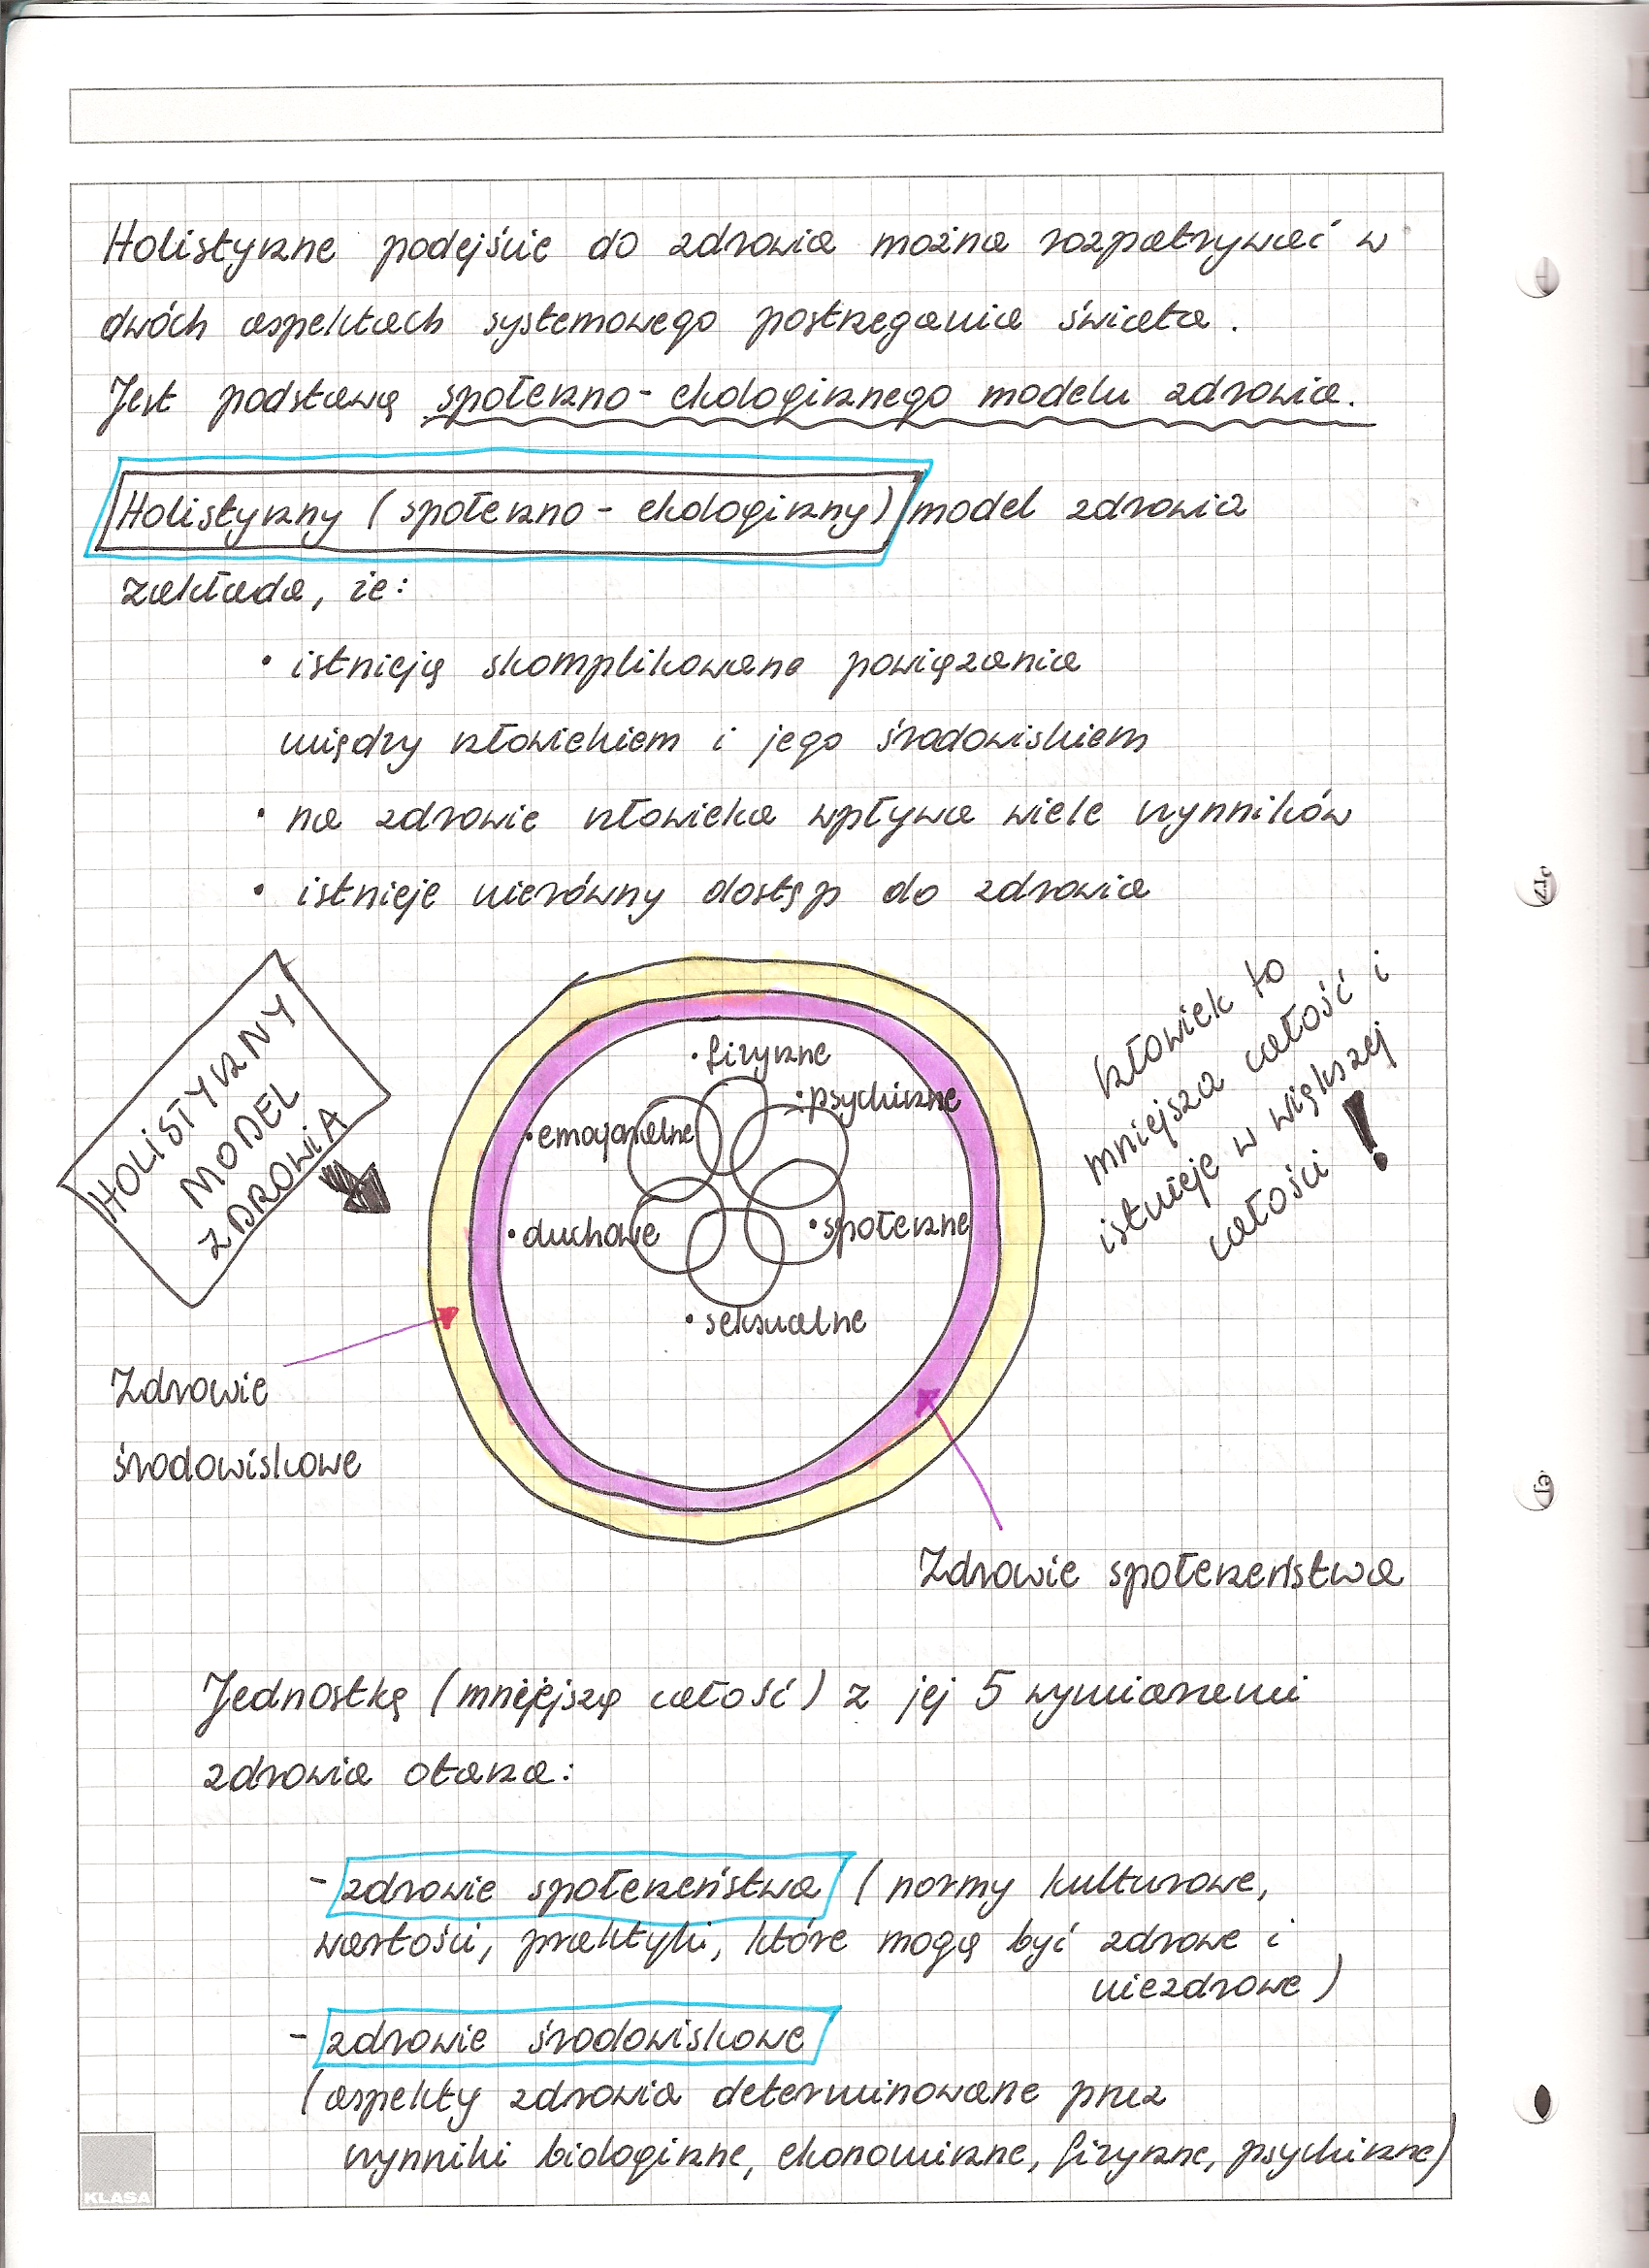 Holistyczne podejście do zdrowia można rozpatrywać w
dwóch aspektach systemowego postrzegania świata.
Jest podstawą społeczno-ekologicznego modelu zdrowia.
Holistyczny (społeczno-ekologiczny) model zdrowia
zakłada, że:
• istnieją skomplikowane powiązania
między człowiekiem i jego środowiskiem
• na zdrowie człowieka wpływa wiele czynników
• istnieje nierówny dostęp do zdrowia
HOLISTYCZNY
MODEL
ZDROWIA
• fizyczne
• psychiczne
• emocjonalne
• duchowe
• społeczne
• seksualne
człowiek to
mniejsza całość i
istnieje w większej
całości !
Zdrowie
środowiskowe
Zdrowie społeczeństwa
Jednostkę (mniejszą całość) z jej 5 wymiarami
zdrowia otacza:
- zdrowie społeczeństwa (normy kulturowe,
wartości, praktyki, które mogą być zdrowe i
niezdrowe)
- zdrowie środowiskowe
(aspekty zdrowia determinowane przez
czynniki biologiczne, ekonomiczne, fizyczne, psychiczne)
KLASA